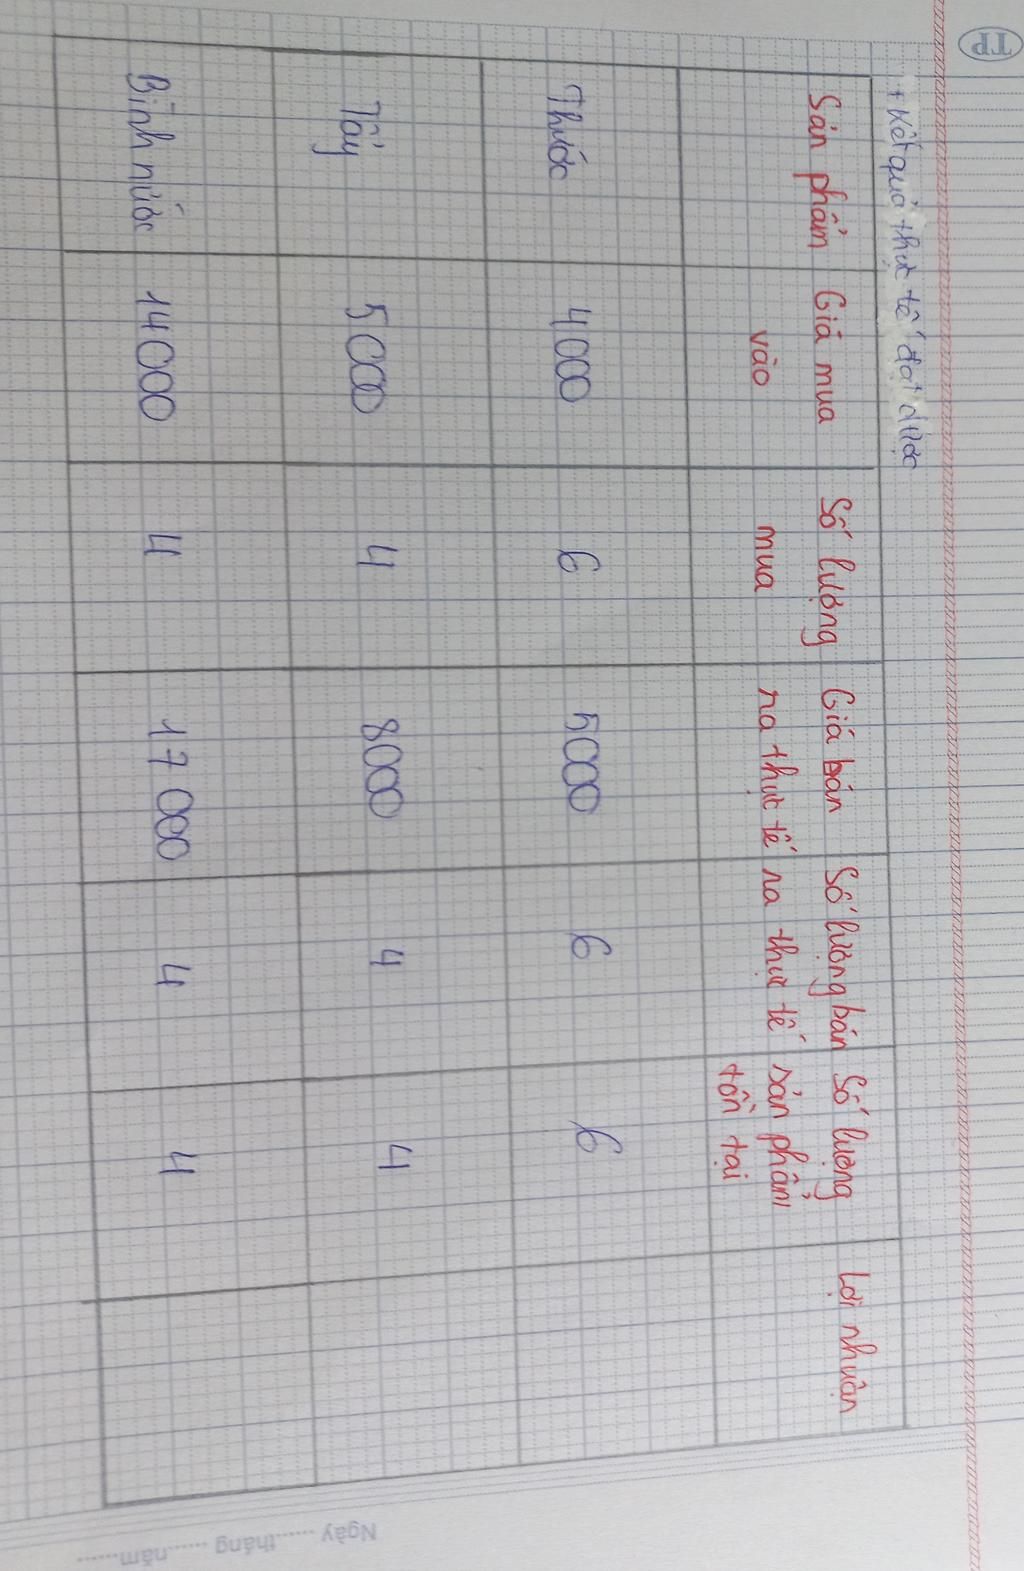 TP
Ngày ......tháng ......năm......
+ Kết quả thực tế đạt được
Sản phẩm Giá mua vào Số lượng mua Giá bán ra thực tế Số lượng bán ra thực tế Số lượng sản phẩm tồn tại Lợi nhuận
Thước 4000 6 5000 6 6
Tẩy 5000 4 8000 4 4
Bình nước 14000 4 17000 4 4